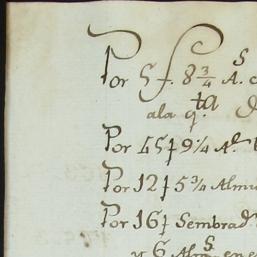 Por 5 f. 8 3/4 A.s
ala q.ta
Por 45 f 9 1/4 A.s
Por 12 f 5 3/4 Almu
Por 16 f Sembrad.s
y 6 Alm.s en e